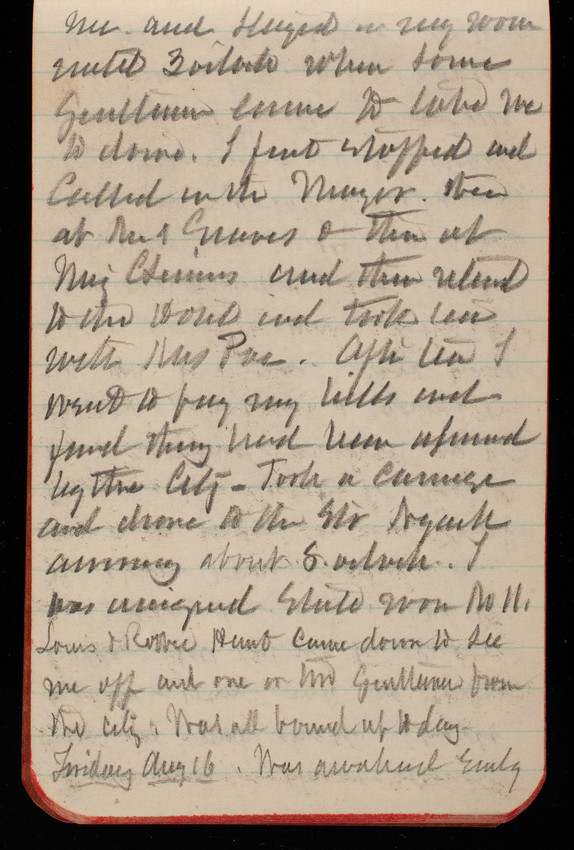 me and stayed in my room
until 3 oclock when some
Gentlemen came to take me
to drive. I first stopped and
Called on the Mayor. then
at Mrs Graves & then at
and then returned
to the Hotel and took tea
with Mrs Poe. After tea I
went to pay my bills and
found they had been assumed
by the City - Took a carriage
and drove to the Str
arriving about 8 oclock. I
was assigned State room No 11.
Louis & Robbie Hunt came down to see
me off and one or two Gentlemen from
the city. Was all bound up to day
Friday Aug 16. Was awakened Early